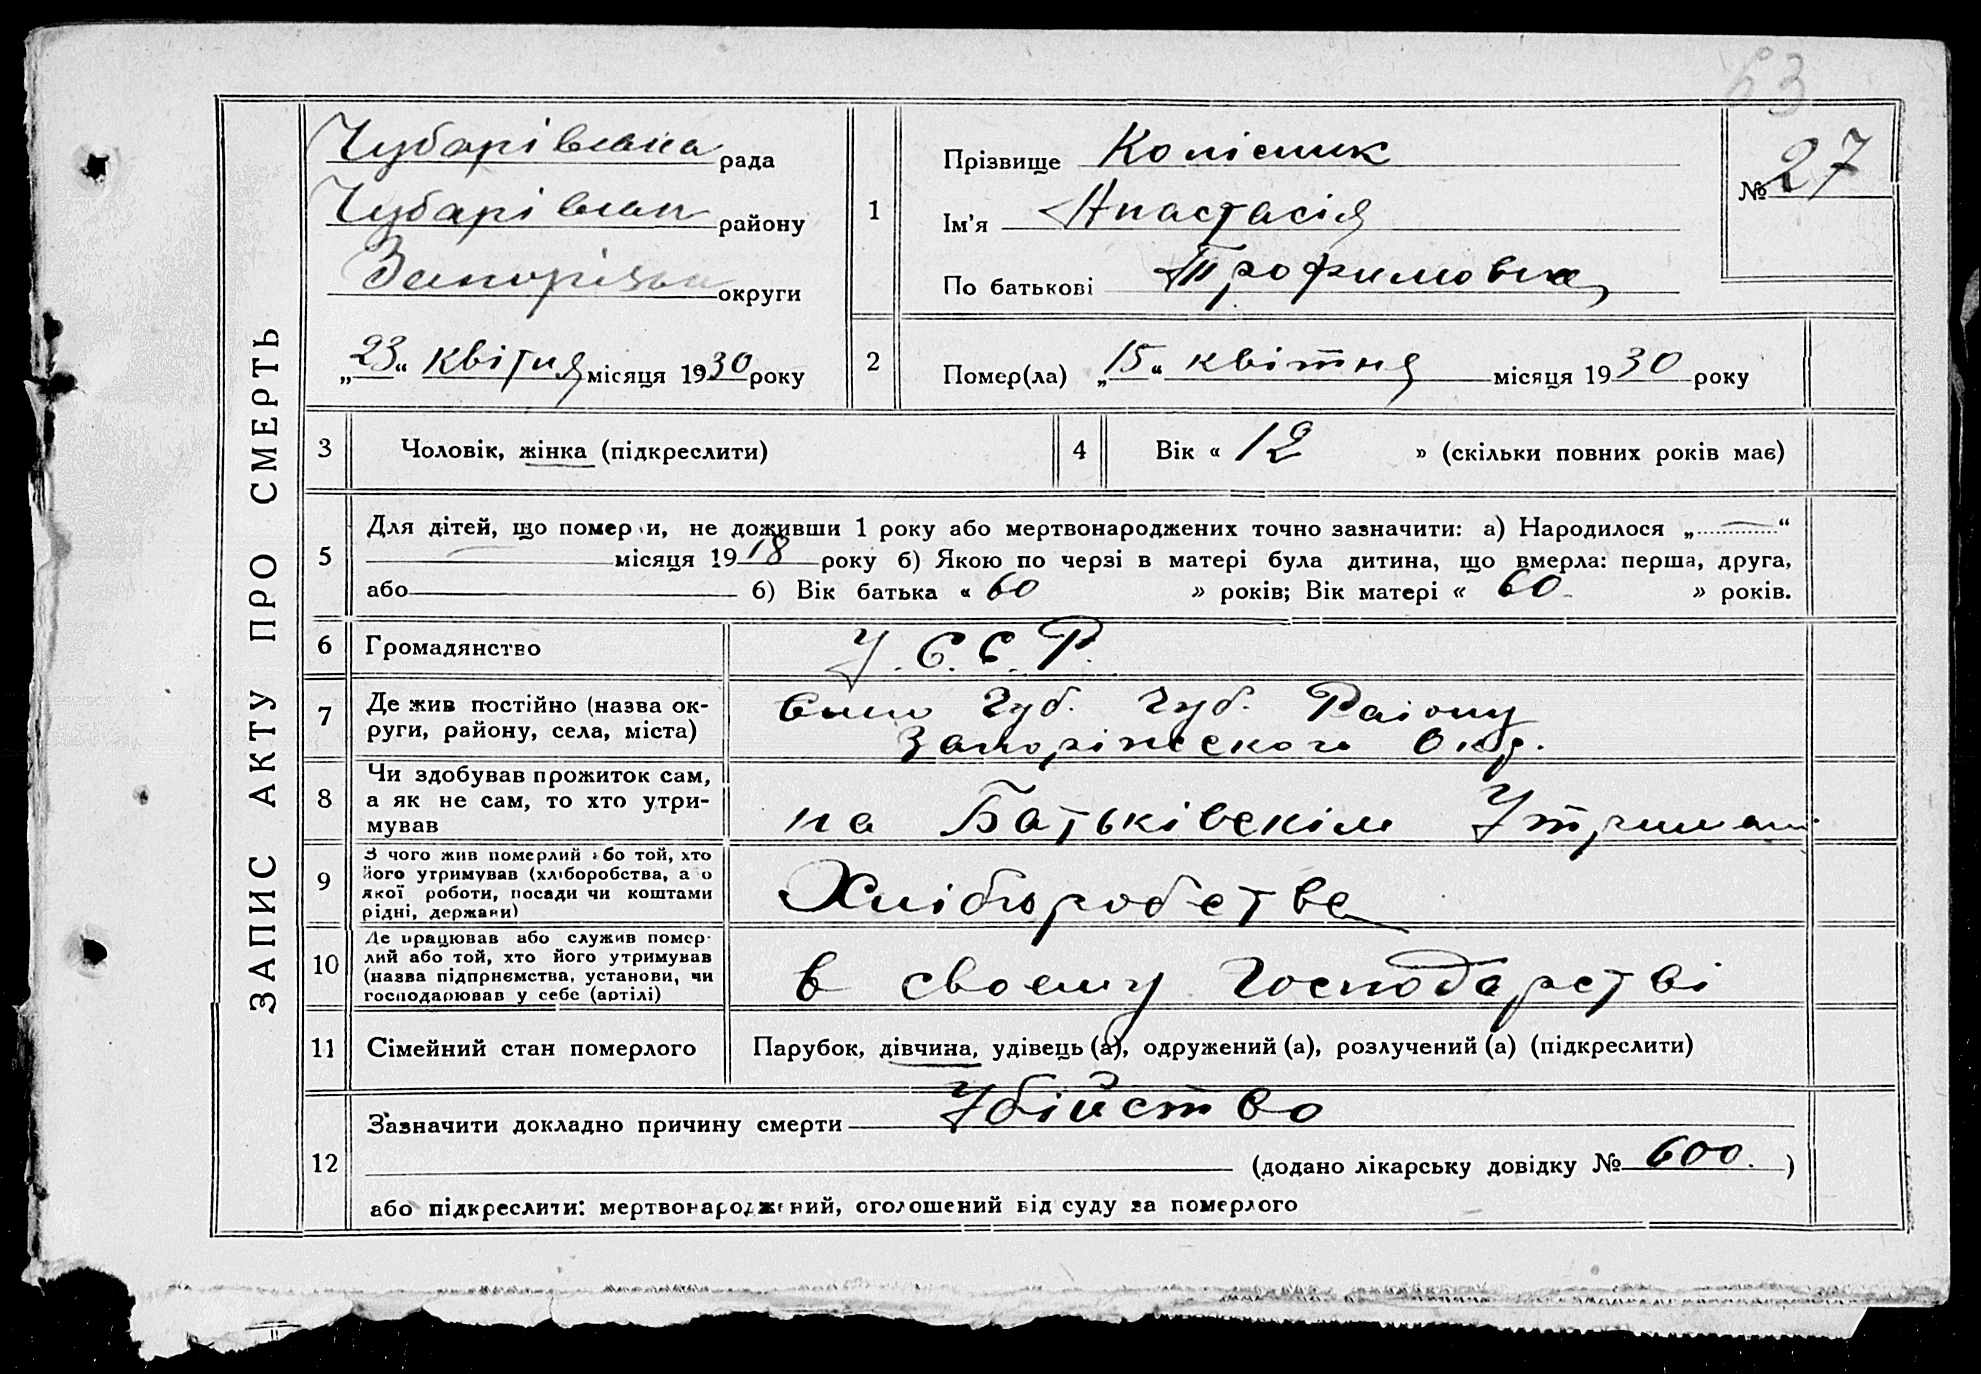 63
ЗАПИС АКТУ ПРО СМЕРТЬ
Чубарівська рада
Чубарівськ району
Запорізьк округи
„23“ квітня місяця 1930 року
1
Прізвище Колісник
Ім'я Анастасія
По батькові Трофимовна
№ 27
2
Помер(ла) „15“ квітня місяця 1930 року
3 Чоловік, жінка (підкреслити)
4 Вік « 12 » (скільки повних років має)
5
Для дітей, що померли, не доживши 1 року або мертвонароджених точно зазначити: а) Народилося „ “
місяця 1918 року б) Якою по черзі в матері була дитина, що вмерла: перша, друга,
або б) Вік батька « 60 » років; Вік матері « 60 » років.
6 Громадянство У.С.С.Р.
7
Де жив постійно (назва ок-
руги, району, села, міста)
Село Чуб. Чуб. Району
Запоріжского Окр.
8
Чи здобував прожиток сам,
а як не сам, то хто утри-
мував
на Батьківскім Утриман
9
З чого жив померлий або той, хто
його утримував (хліборобства, а о
якої роботи, посади чи коштами
рідні, держави)
Хліборобства
10
Де працював або служив помер-
лий або той, хто його утримував
(назва підприємства, установи, чи
господарював у себе (артілі)
в своєму Господарстві
11 Сімейний стан померлого Парубок, дівчина, удівець (а), одружений (а), розлучений (а) (підкреслити)
12
Зазначити докладно причину смерти Убійство
(додано лікарську довідку № 600.)
або підкреслити: мертвонароджений, оголошений від суду за померлого